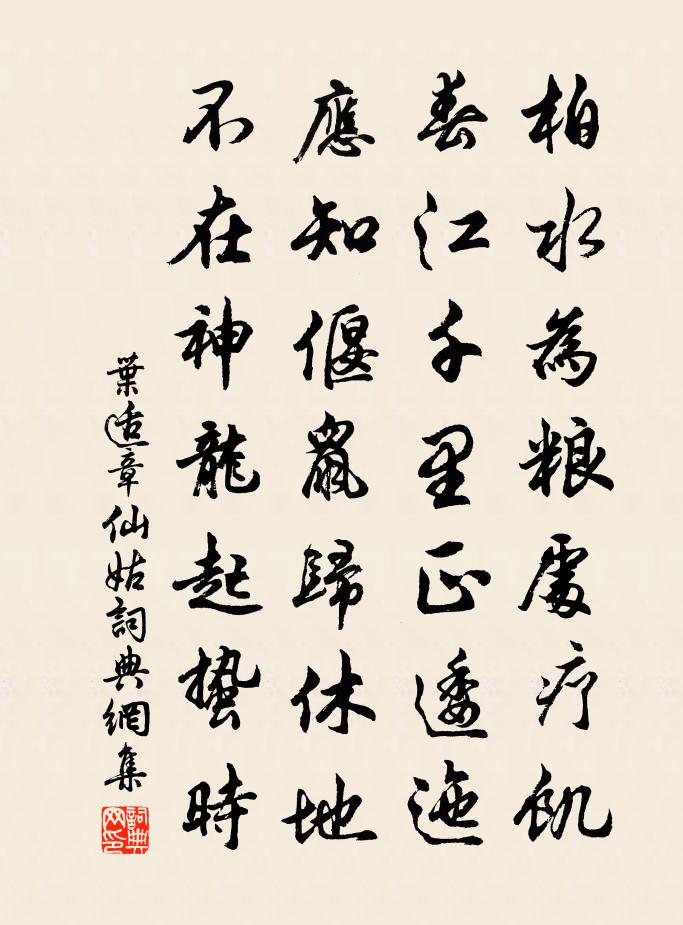 柏水為粮處疗飢
春江千里正逶迤
應知偃鼠歸休地
不在神龍起蟄時
葉适章仙姑詞典網集
詞典网印